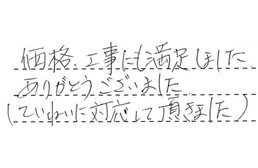 価格、工事にも満足しました
ありがとうございました
(ていねいに対応して頂きました)